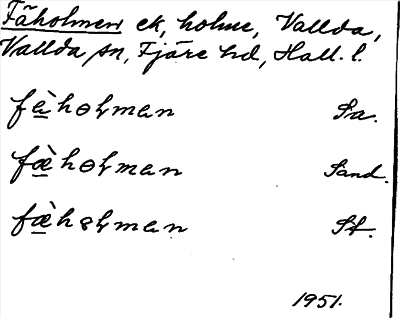 Fäholmen ek, holme, Vallda,
Vallda sn, Fjäre hd, Hall. l.
fà̲hɵɫman Sa.
fæ̲̀hɵɫman Sand.
fæ̲̀hɵɫman St.
1951.